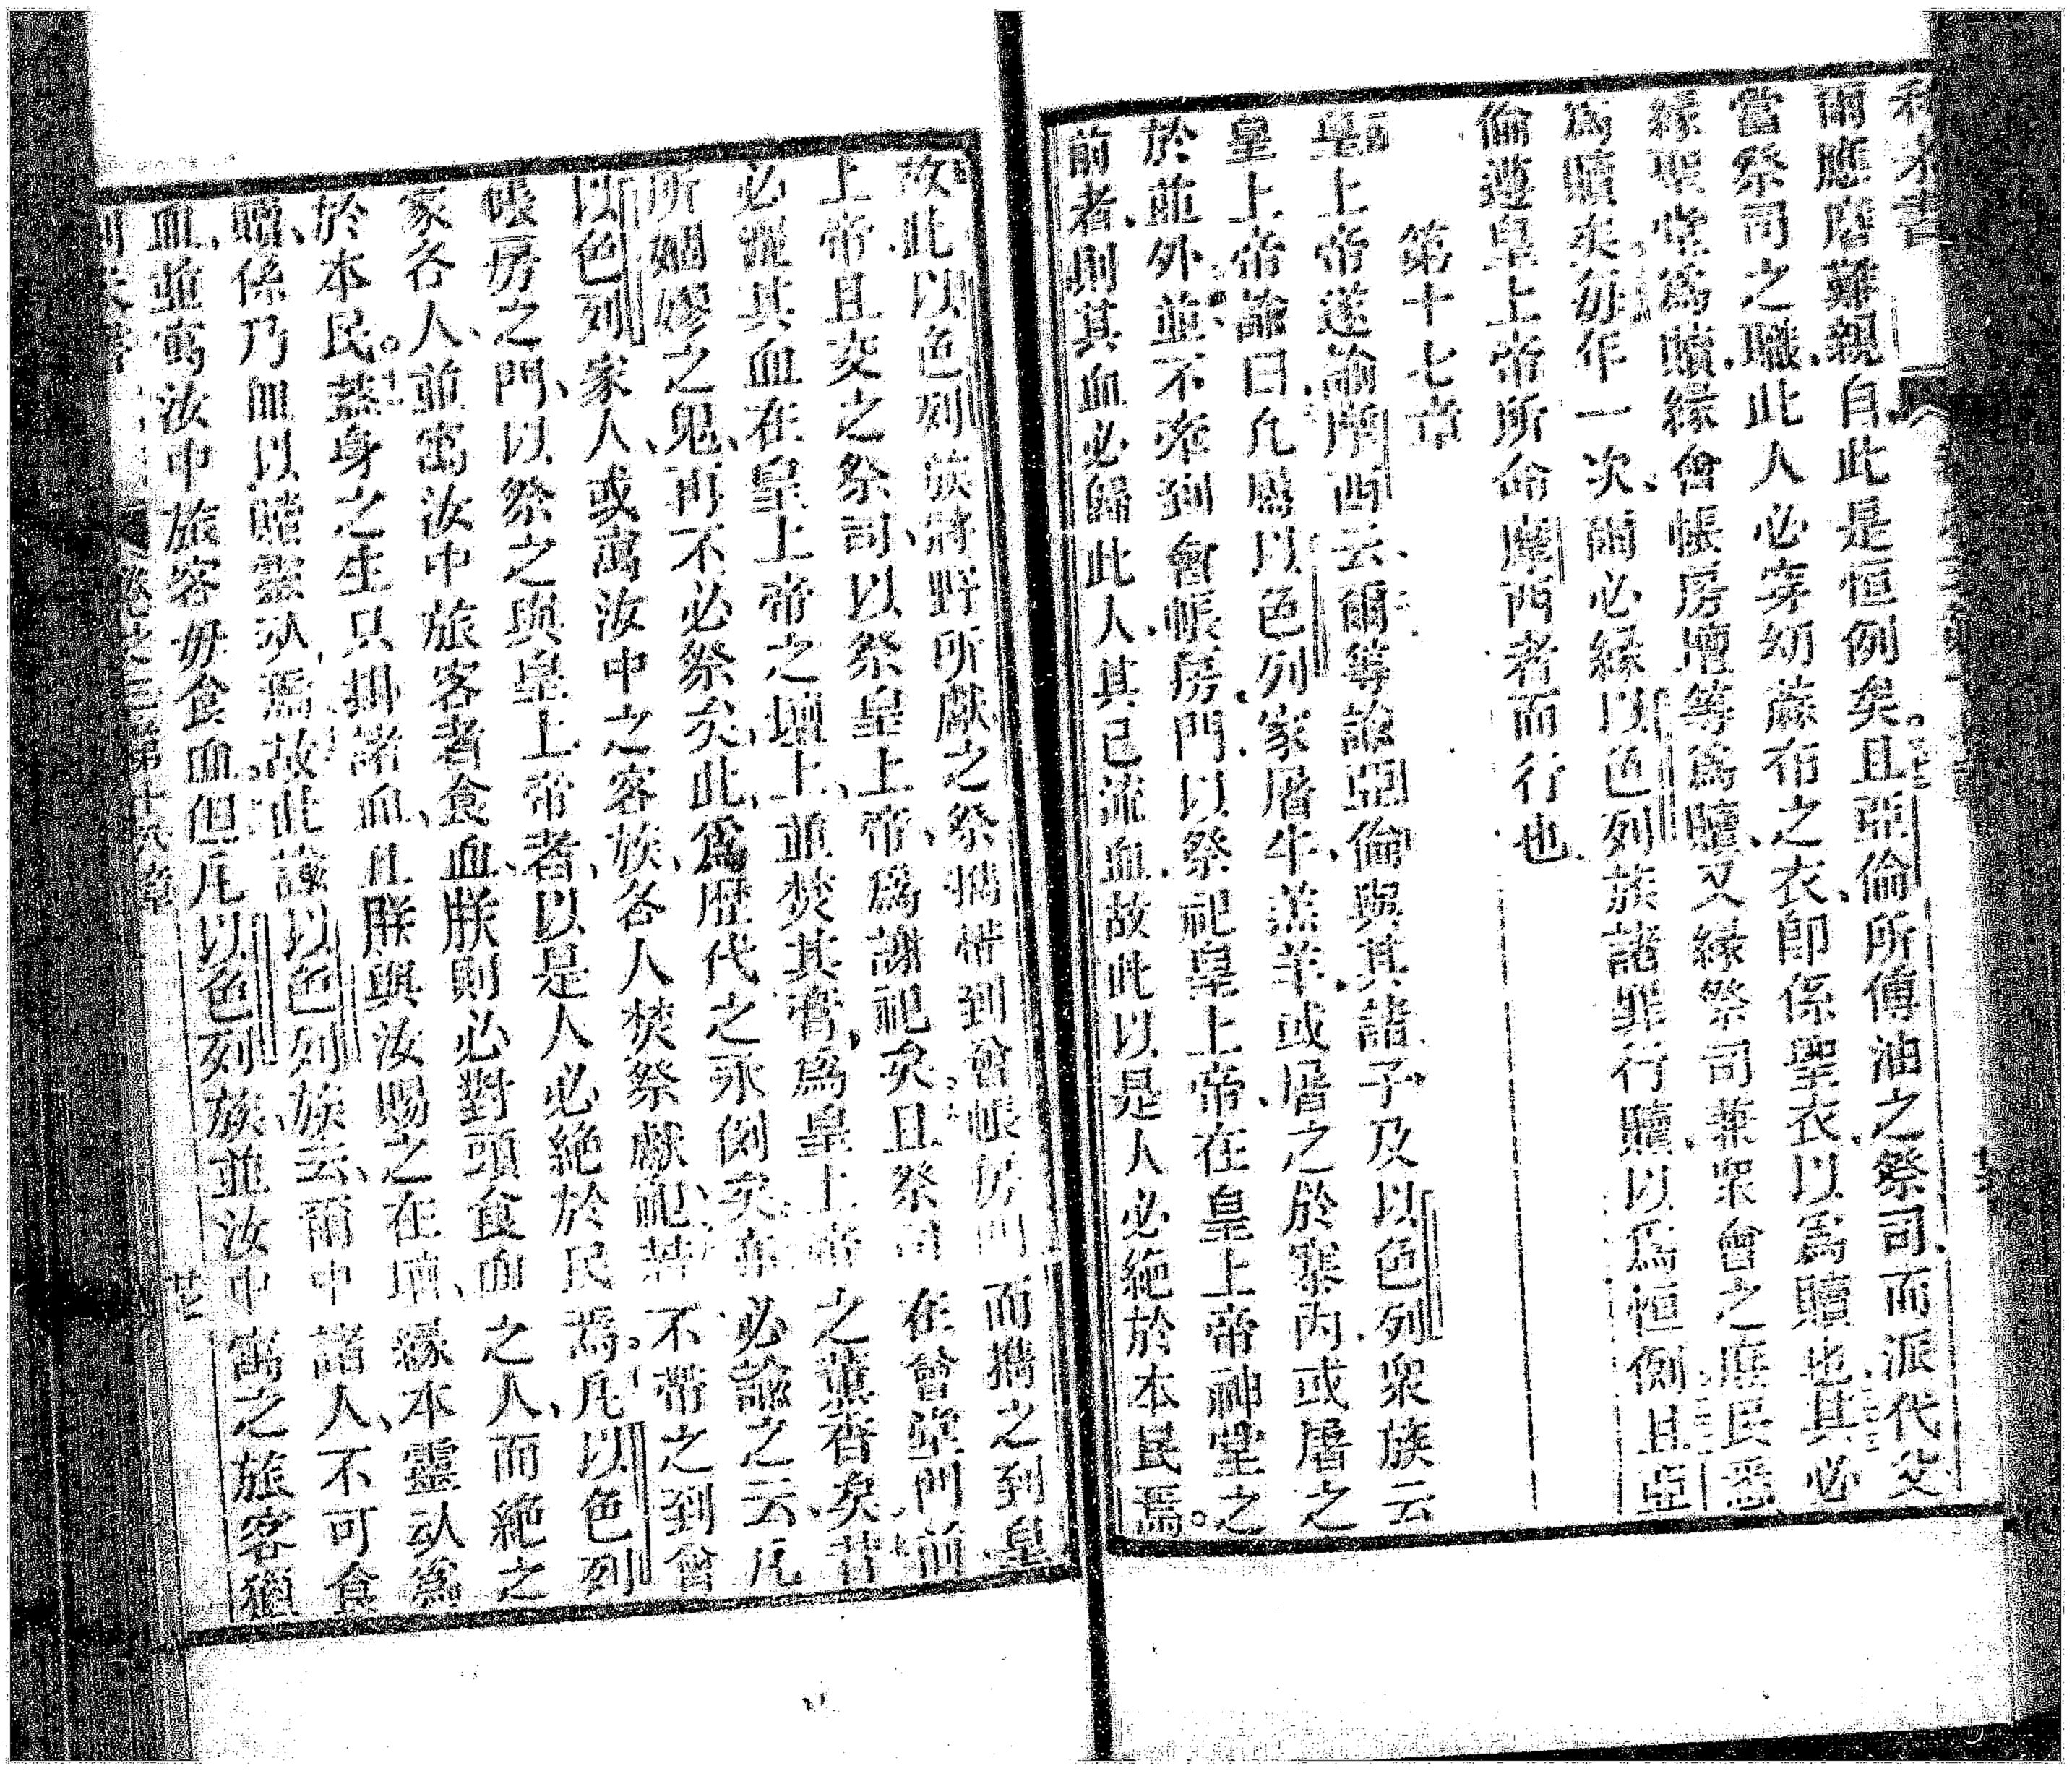 利未書
爾應磨難親自此是恒例矣且亞倫所傅油之祭司而派代父
當祭司之職此人必穿幼蔴布之衣卽係聖衣以爲贖也其必
緣聖堂爲贖緣會帳房壇等爲贖又緣祭司兼衆會之庶民悉
爲贖矣勿作一次爾必緣以色列族諸罪行贖以爲恒例且亞
倫遵皇上帝所命摩西者而行也
第十七章
皇上帝遂諭摩西云爾等諭亞倫與其諸子及以色列衆族云
皇上帝諭曰凡屬以色列家屠牛羔羊或屠之於寨內或屠之
於並外並不牽到會帳房門以祭祀皇上帝在皇上帝神堂之
前者則其血必歸此人其已流血故此以是人必絕於本民焉
故此以色列族將野所獻之祭攜帶到會帳房門而攜之到皇
上帝且交之祭司以祭皇上帝爲謝祀矣且祭司在會堂門前
必灑其血在皇上帝之壇上並焚其膏爲皇上帝之薰香矣昔
所姻嫪之鬼再不必祭矣此爲歷代之永例矣亦必諭之云凡
以色列家人或寓汝中之客族各人焚祭獻祀若不帶之到會
帳房之門以祭之與皇上帝者以是人必絕於民焉凡以色列
家各人並寓汝中旅客者食血朕則必對頭食血之人而絕之
於本民蓋身之生只掛諸血且朕與汝賜之在壇緣本靈以爲
贖係乃血以贖靈以焉故此諭以色列族云爾中諸人不可食
血並寓汝中旅客毋食血但凡以色列族並汝中寓之旅客獵
卷之三第十八章